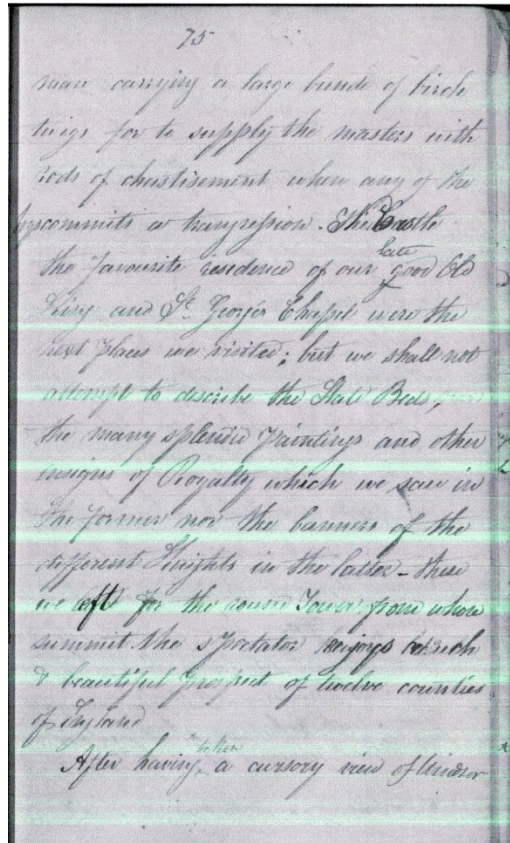 75
man carrying a large bundle of birch
twigs for to supply the masters with
rods of chastisement when any of the
boys commits a transgression. The Castle
late
the favourite residence of our good Old
King and St. George's Chapel were the
next places we visited; but we shall not
attempt to describe the State Beds,
the many splendid Paintings and other
ensigns of Royalty which we saw in
the former nor the banners of the
different Knights in the latter - these
we left for the round Tower from whose
summit the spectator enjoys a rich
& beautiful prospect of twelve counties
of England
taken
After having a cursory view of Windsor